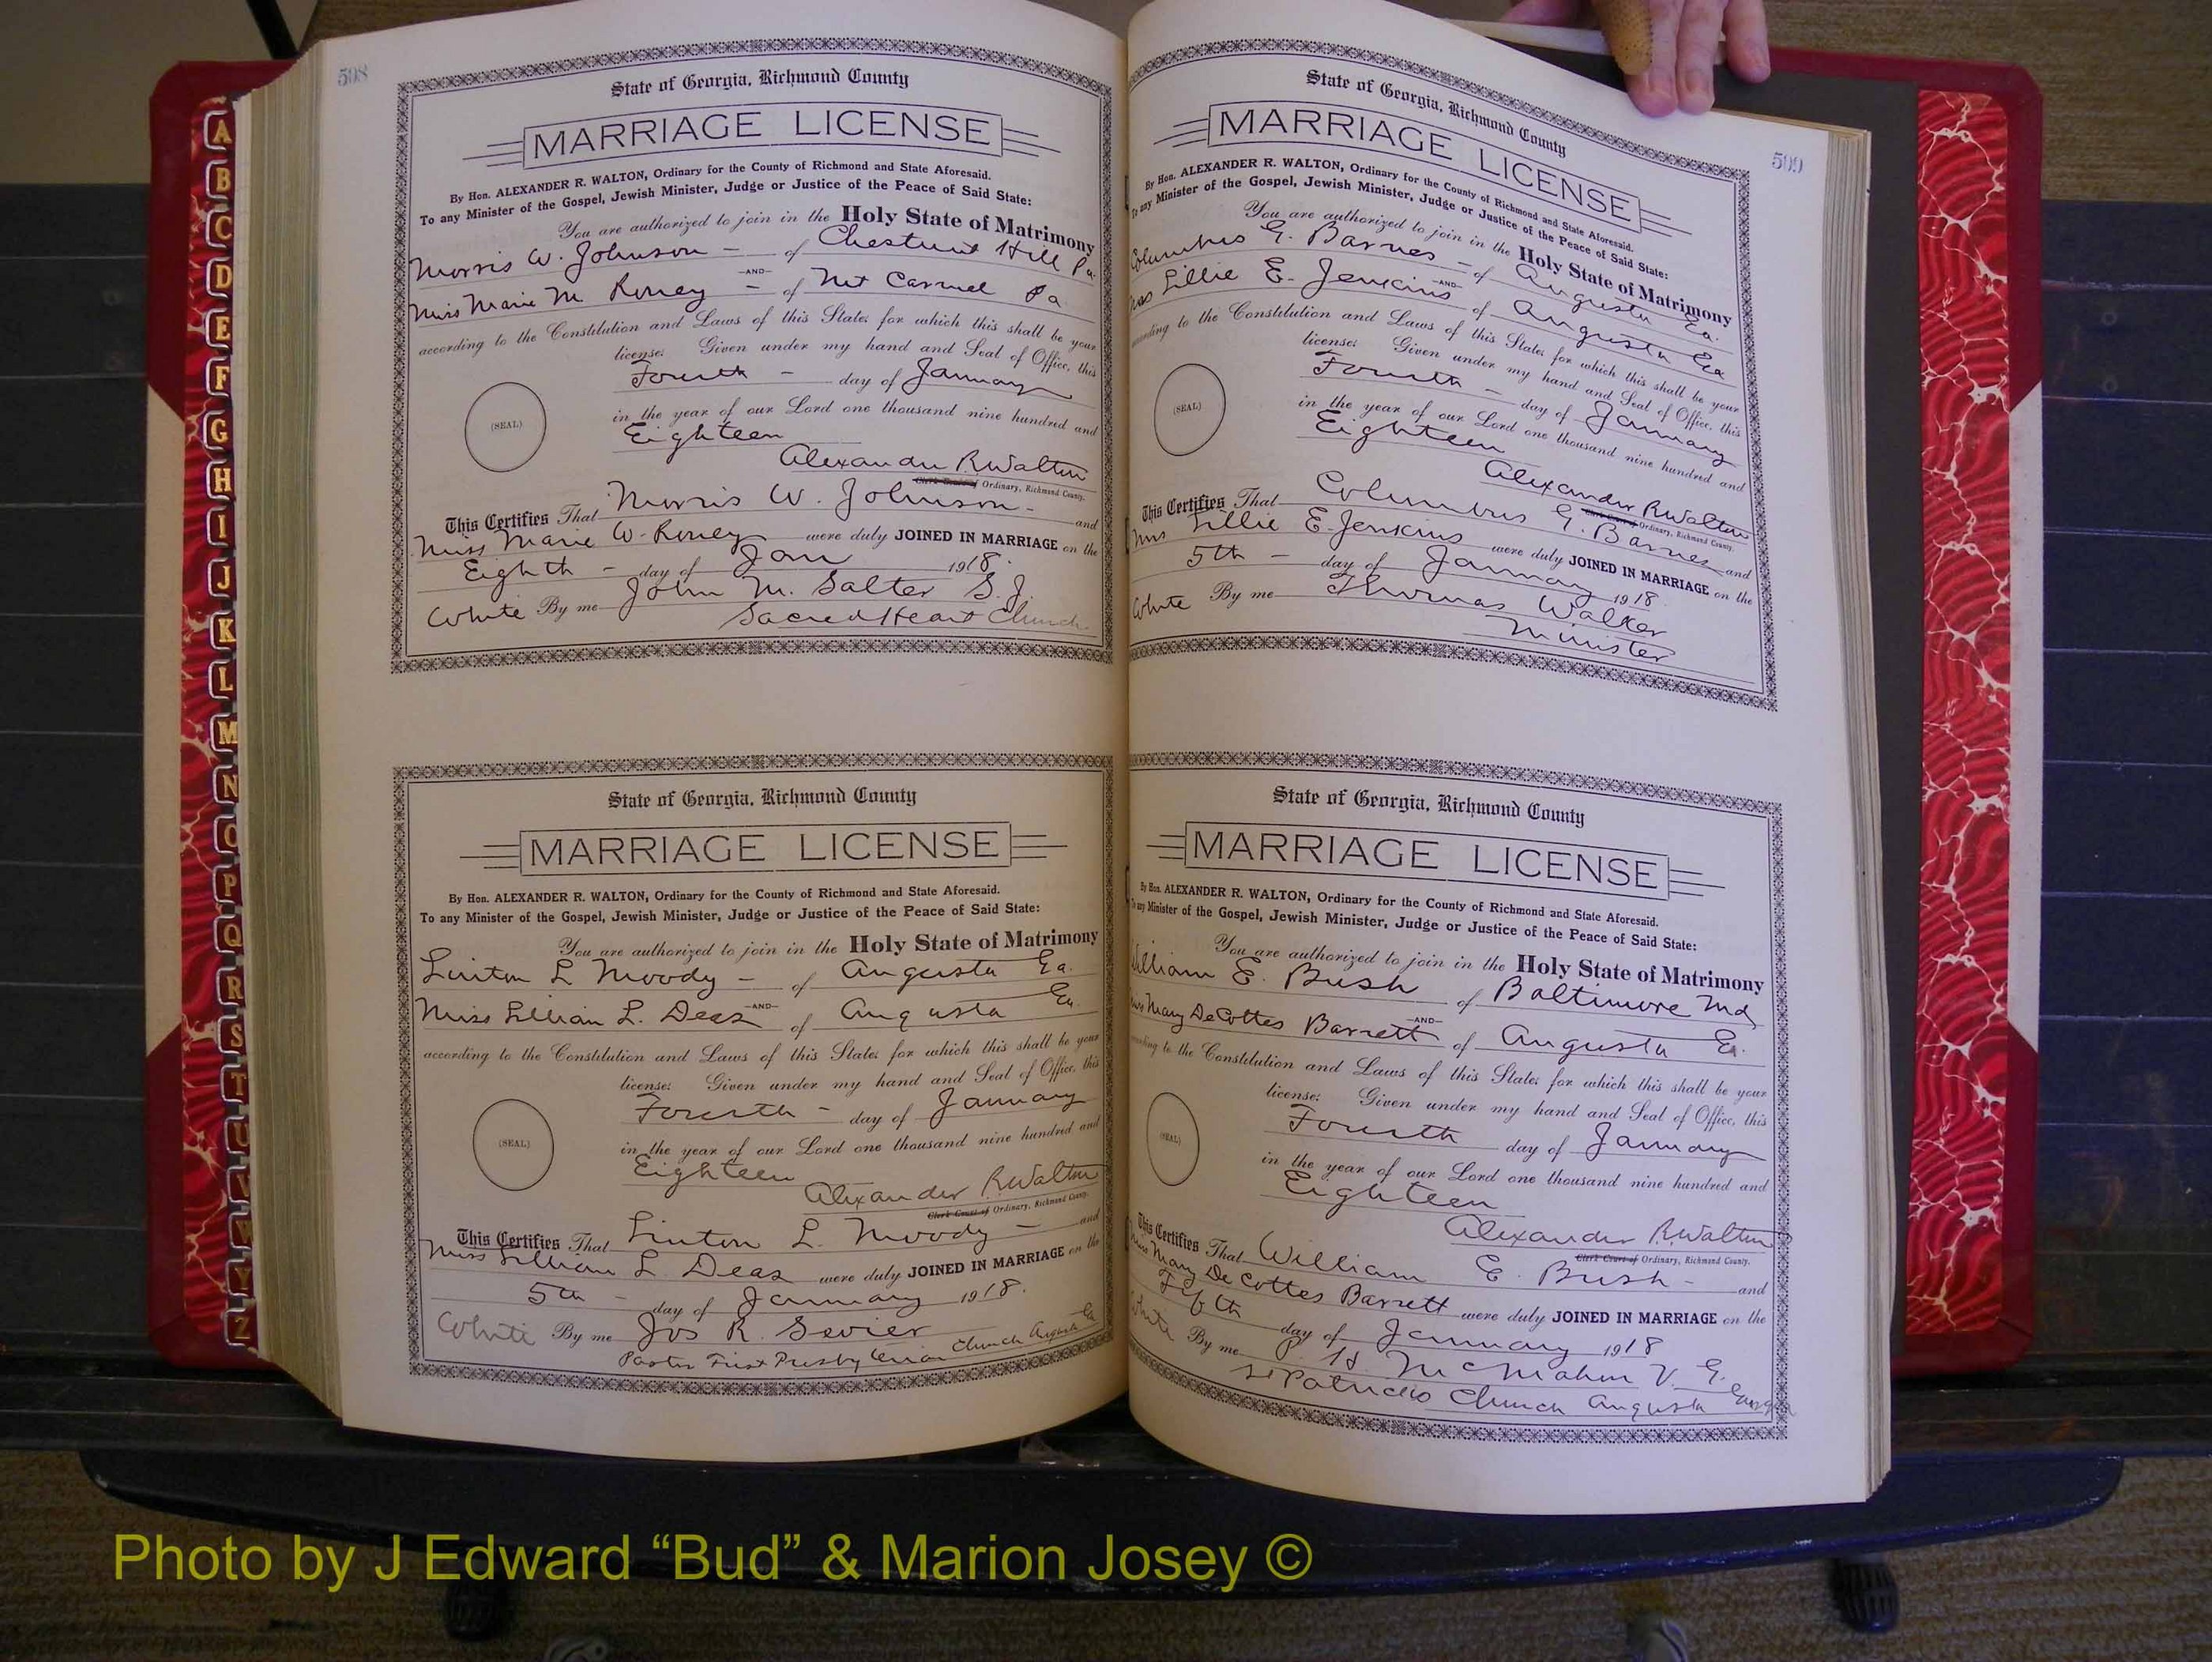 598
State of Georgia, Richmond County
MARRIAGE LICENSE
By Hon. ALEXANDER R. WALTON, Ordinary for the County of Richmond and State Aforesaid.
To any Minister of the Gospel, Jewish Minister, Judge or Justice of the Peace of Said State:
You are authorized to join in the Holy State of Matrimony
Morris W. Johnson - of Chestnut Hill Pa
-AND-
Miss Marie M Roney - of Mt Carmel Pa
according to the Constitution and Laws of this State, for which this shall be your
license. Given under my hand and Seal of Office, this
Fourth - day of January
(SEAL)
in the year of our Lord one thousand nine hundred and
Eighteen
Alexander R Walton
Clerk Court of Ordinary, Richmond County.
This Certifies That Morris W. Johnson - and
Miss Marie W. Roney were duly JOINED IN MARRIAGE on the
Eighth - day of Jan 1918.
White By me John M. Salter S.J.
Sacred Heart Church
State of Georgia, Richmond County
MARRIAGE LICENSE
By Hon. ALEXANDER R. WALTON, Ordinary for the County of Richmond and State Aforesaid.
To any Minister of the Gospel, Jewish Minister, Judge or Justice of the Peace of Said State:
You are authorized to join in the Holy State of Matrimony
Linton L Moody - of Augusta Ga.
-AND-
Miss Lillian L. Deas of Augusta Ga.
according to the Constitution and Laws of this State, for which this shall be your
license. Given under my hand and Seal of Office, this
Fourth - day of January
(SEAL)
in the year of our Lord one thousand nine hundred and
Eighteen
Alexander R Walton
Clerk Court of Ordinary, Richmond County.
This Certifies That Linton L. Moody - and
Miss Lillian L. Deas were duly JOINED IN MARRIAGE on the
5th - day of January 1918.
White By me Jos R. Sevier
Pastor First Presbyterian Church Augusta Ga
599
State of Georgia, Richmond County
MARRIAGE LICENSE
By Hon. ALEXANDER R. WALTON, Ordinary for the County of Richmond and State Aforesaid.
To any Minister of the Gospel, Jewish Minister, Judge or Justice of the Peace of Said State:
You are authorized to join in the Holy State of Matrimony
Columbus G. Barnes - of Augusta Ga.
-AND-
Lillie E. Jenkins of Augusta Ga
according to the Constitution and Laws of this State, for which this shall be your
license. Given under my hand and Seal of Office, this
Fourth - day of January
(SEAL)
in the year of our Lord one thousand nine hundred and
Eighteen
Alexander R Walton
Clerk Court of Ordinary, Richmond County.
This Certifies That Columbus G. Barnes and
Mrs Lillie E. Jenkins were duly JOINED IN MARRIAGE on the
5th - day of January 1918
White By me Thomas Walker
Minister
State of Georgia, Richmond County
MARRIAGE LICENSE
By Hon. ALEXANDER R. WALTON, Ordinary for the County of Richmond and State Aforesaid.
To any Minister of the Gospel, Jewish Minister, Judge or Justice of the Peace of Said State:
You are authorized to join in the Holy State of Matrimony
William E. Bush of Baltimore Md
-AND-
Miss Mary DeCottes Barrett of Augusta Ga.
according to the Constitution and Laws of this State, for which this shall be your
license. Given under my hand and Seal of Office, this
Fourth day of January
(SEAL)
in the year of our Lord one thousand nine hundred and
Eighteen
Alexander R Walton
Clerk Court of Ordinary, Richmond County.
This Certifies That William E. Bush - and
Miss Mary DeCottes Barrett were duly JOINED IN MARRIAGE on the
Fifth day of January 1918
White By me P H McMahon V. G.
St Patricks Church Augusta Georgia
A
B
C
D
E
F
G
H
I
J
K
L
M
N
O
P
Q
R
S
T
U
V
W
Y
Z
Photo by J Edward “Bud” & Marion Josey ©